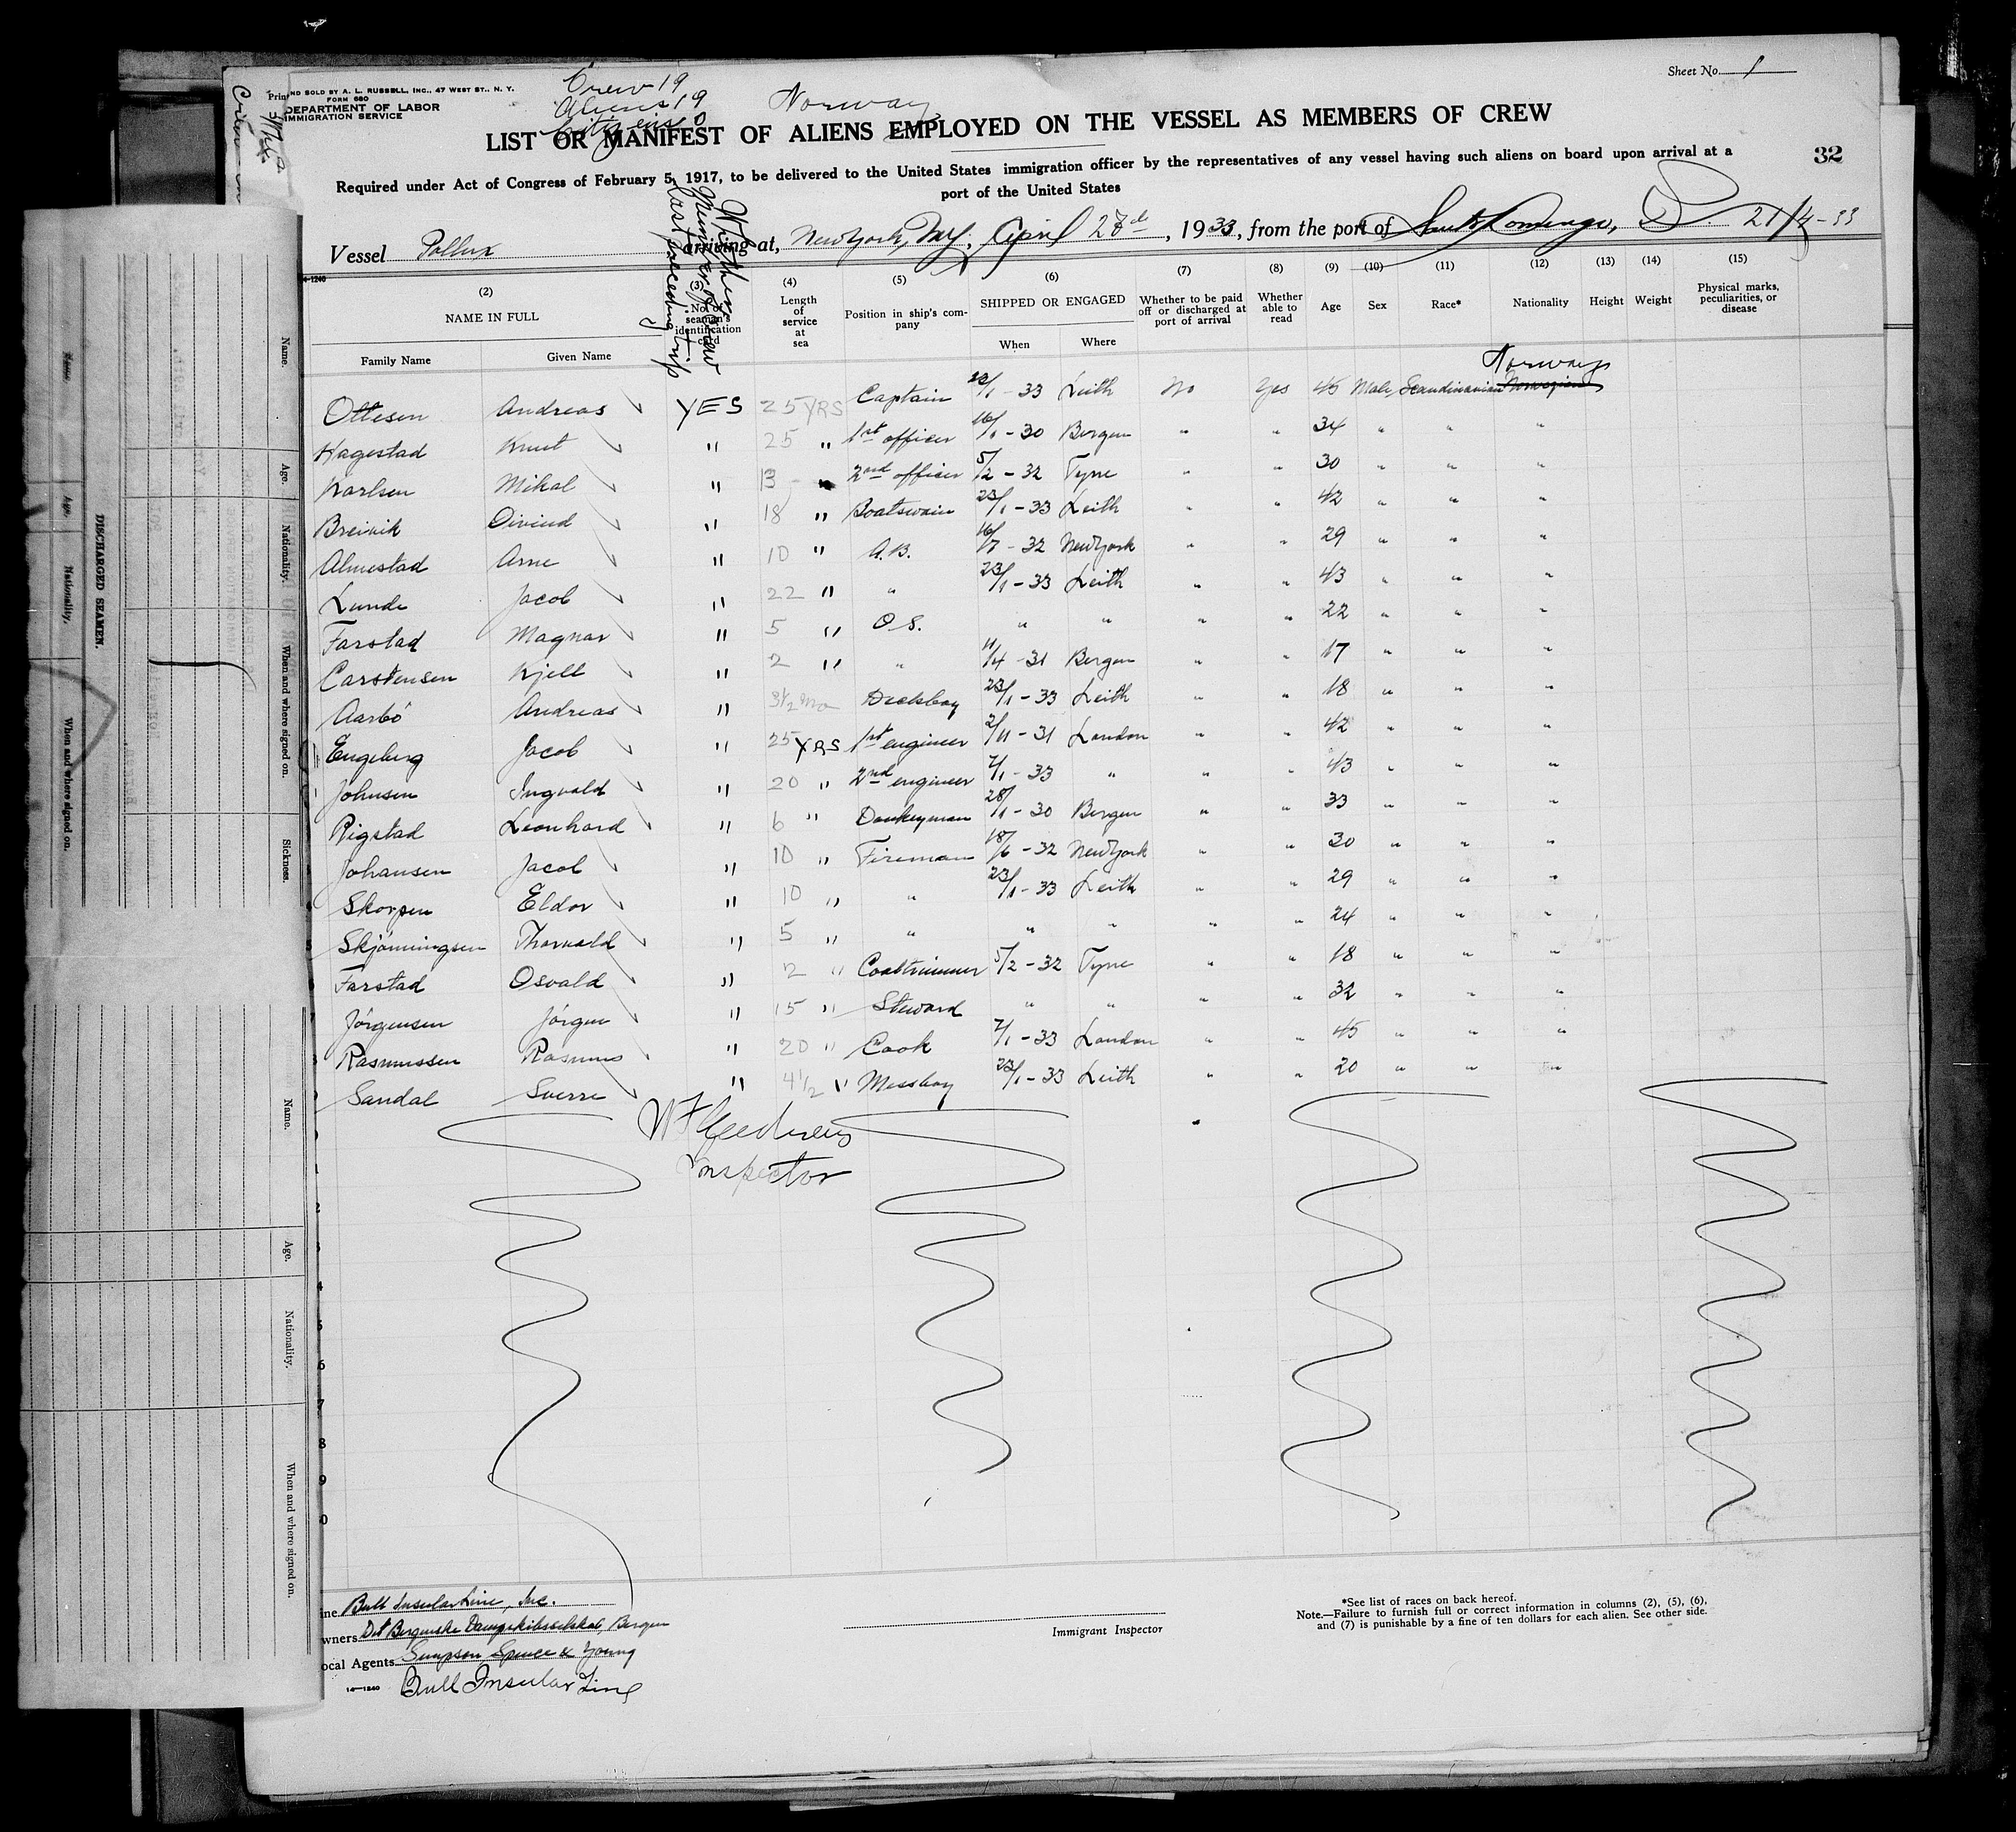 Sheet No. 1
AND SOLD BY A. L. RUSSELL, INC., 47 WEST ST., N. Y.
FORM 680
DEPARTMENT OF LABOR
IMMIGRATION SERVICE
Crew 19
Aliens 19
Citizens 0
Norway
LIST OR MANIFEST OF ALIENS EMPLOYED ON THE VESSEL AS MEMBERS OF CREW
32
Required under Act of Congress of February 5, 1917, to be delivered to the United States immigration officer by the representatives of any vessel having such aliens on board upon arrival at a
port of the United States
Vessel Pollux arriving at, New York, NY, April 28d, 1933, from the port of Santo Domingo, D. 21/4-33
Whether member of crew last preceding trip
(2) (3) (4) (5) (6) (7) (8) (9) (10) (11) (12) (13) (14) (15)
NAME IN FULL No. of seaman's identification card Length of service at sea Position in ship's company SHIPPED OR ENGAGED Whether to be paid off or discharged at port of arrival Whether able to read Age Sex Race* Nationality Height Weight Physical marks, peculiarities, or disease
Family Name Given Name When Where
Norway
Ottesen Andreas YES 25 YRS Captain 23/1 - 33 Leith No Yes 45 Male Scandinavian Norwegian
Hagestad Knut " 25 " 1st officer 16/1 - 30 Bergen " " 34 " " "
Karlsen Mikal " 13 " 2nd officer 5/2 - 32 Tyne " " 30 " " "
Breivik Oivind " 18 " Boatswain 23/1 - 33 Leith " " 42 " " "
Almestad Arne " 10 " A.B. 16/7 - 32 New York " " 29 " " "
Lunde Jacob " 22 " " 23/1 - 33 Leith " " 43 " " "
Farstad Magnar " 5 " O.S. " " " " 22 " " "
Carstensen Kjell " 2 " " 11/4 - 31 Bergen " " 17 " " "
Aarbö Andreas " 3 1/2 Mo Decksboy 23/1 - 33 Leith " " 18 " " "
Engeberg Jacob " 25 YRS 1st engineer 2/11 - 31 London " " 42 " " "
Johnsen Ingvald " 20 " 2nd engineer 7/1 - 33 " " " 43 " " "
Rigstad Leonhard " 6 " Donkeyman 28/1 - 30 Bergen " " 33 " " "
Johansen Jacob " 10 " Fireman 18/6 - 32 New York " " 30 " " "
Skorpen Eldor " 10 " " 23/1 - 33 Leith " " 29 " " "
Skjönningsen Thorvald " 5 " " " " " " 24 " " "
Farstad Osvald " 2 " Coaltrimmer 5/2 - 32 Tyne " " 18 " " "
Jörgensen Jörgen " 15 " Steward " " " " 32 " " "
Rasmussen Rasmus " 20 " Cook 7/1 - 33 London " " 45 " " "
Sandal Sverre " 4 1/2 " Messboy 23/1 - 33 Leith " " 20 " " "
Inspector
Bull Insular Line, Inc.
Owners Det Bergenske Dampskibsselskab, Bergen
Local Agents Simpson Spence & Young
14—1240 Bull Insular Line
Immigrant Inspector
*See list of races on back hereof.
Note.—Failure to furnish full or correct information in columns (2), (5), (6),
and (7) is punishable by a fine of ten dollars for each alien. See other side.
DISCHARGED SEAMEN.
Name. Age. Nationality. When and where signed on. Sickness.
Name. Age. Nationality. When and where signed on.